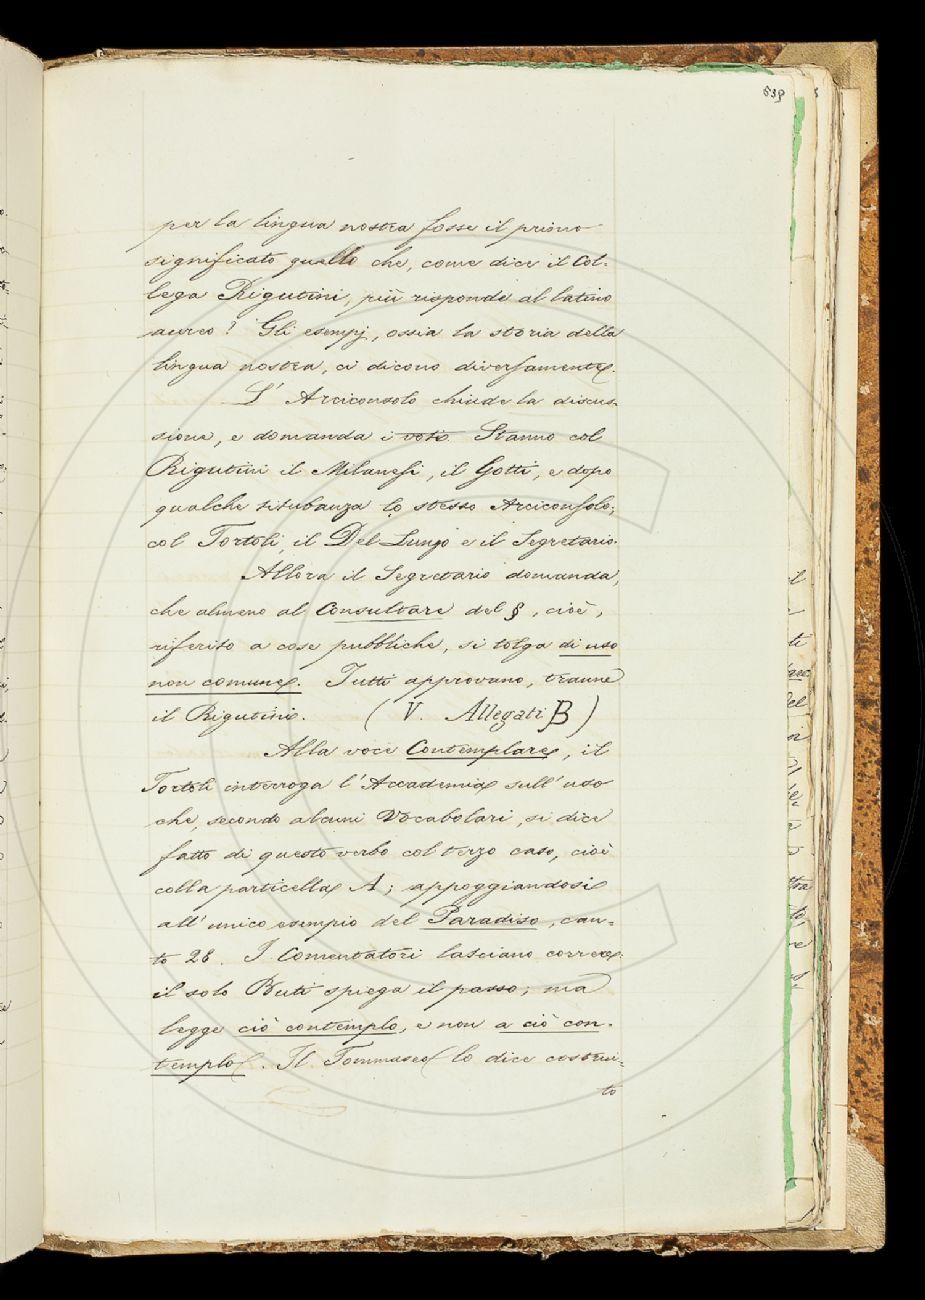 539
per la lingua nostra fosse il primo
significato quello che, come dice il Col-
lega Rigutini, più risponde al latino
aureo? Gli esempj, ossia la storia della
lingua nostra, ci dicono diversamente.
L' Arciconsolo chiude la discus-
sione, e domanda i voti. Stanno col
Rigutini il Milanesi, il Gotti, e dopo
qualche titubanza lo stesso Arciconsolo;
col Tortoli, il Del Lungo e il Segretario.
Allora il Segretario domanda,
che almeno al Consultare del §, cioè,
riferito a cose pubbliche, si tolga di uso
non comune. Tutti approvano, tranne
il Rigutini. (V. Allegati B)
Alla voce Contemplare, il
Tortoli interroga l'Accademia sull'uso
che, secondo alcuni Vocabolari, si dice
fatto di questo verbo col terzo caso, cioè
colla particella A; appoggiandosi
all'unico esempio del Paradiso, can-
to 28. I Comentatori lasciano correre.
il solo Buti spiega il passo; ma
legge ciò contemplo, e non a ciò con-
templo. Il Tommaseo lo dice costrui-
to